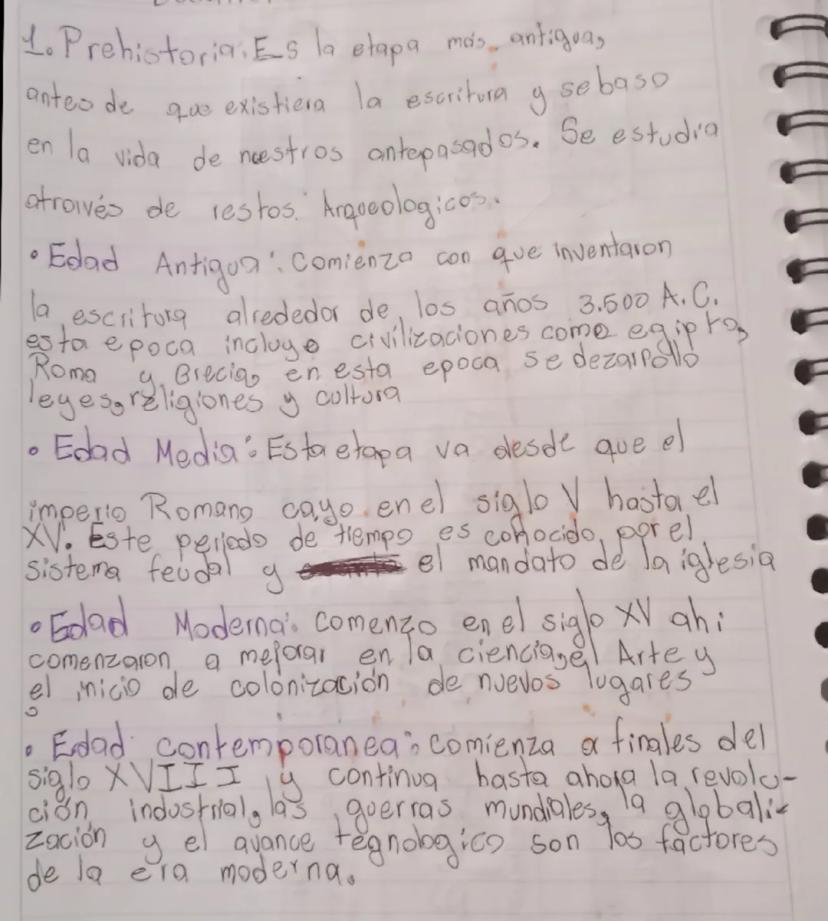 1. Prehistoria: Es la etapa más antigua,
antes de que existiera la escritura y se baso
en la vida de nuestros antepasados. Se estudia
através de restos Arqueologicos.
• Edad Antigua: Comienza con que inventaron
la escritura alrededor de los años 3.500 A.C.
esta epoca incluye civilizaciones como egipto,
Roma y Grecia, en esta epoca se dezarrollo
leyes, religiones y cultura
• Edad Media: Esta etapa va desde que el
imperio Romano cayo en el siglo V hasta el
XV. Este periodo de tiempo es conocido por el
sistema feudal y el mandato de la iglesia
• Edad Moderna: comenzo en el siglo XV ahi
comenzaron a mejorar en la ciencia, el Arte y
el inicio de colonización de nuevos lugares
• Edad contemporanea: comienza a finales del
siglo XVIII y continua hasta ahora la revolu-
ción industrial, las guerras mundiales, la globali-
zación y el avance tegnologico son los factores
de la era moderna.